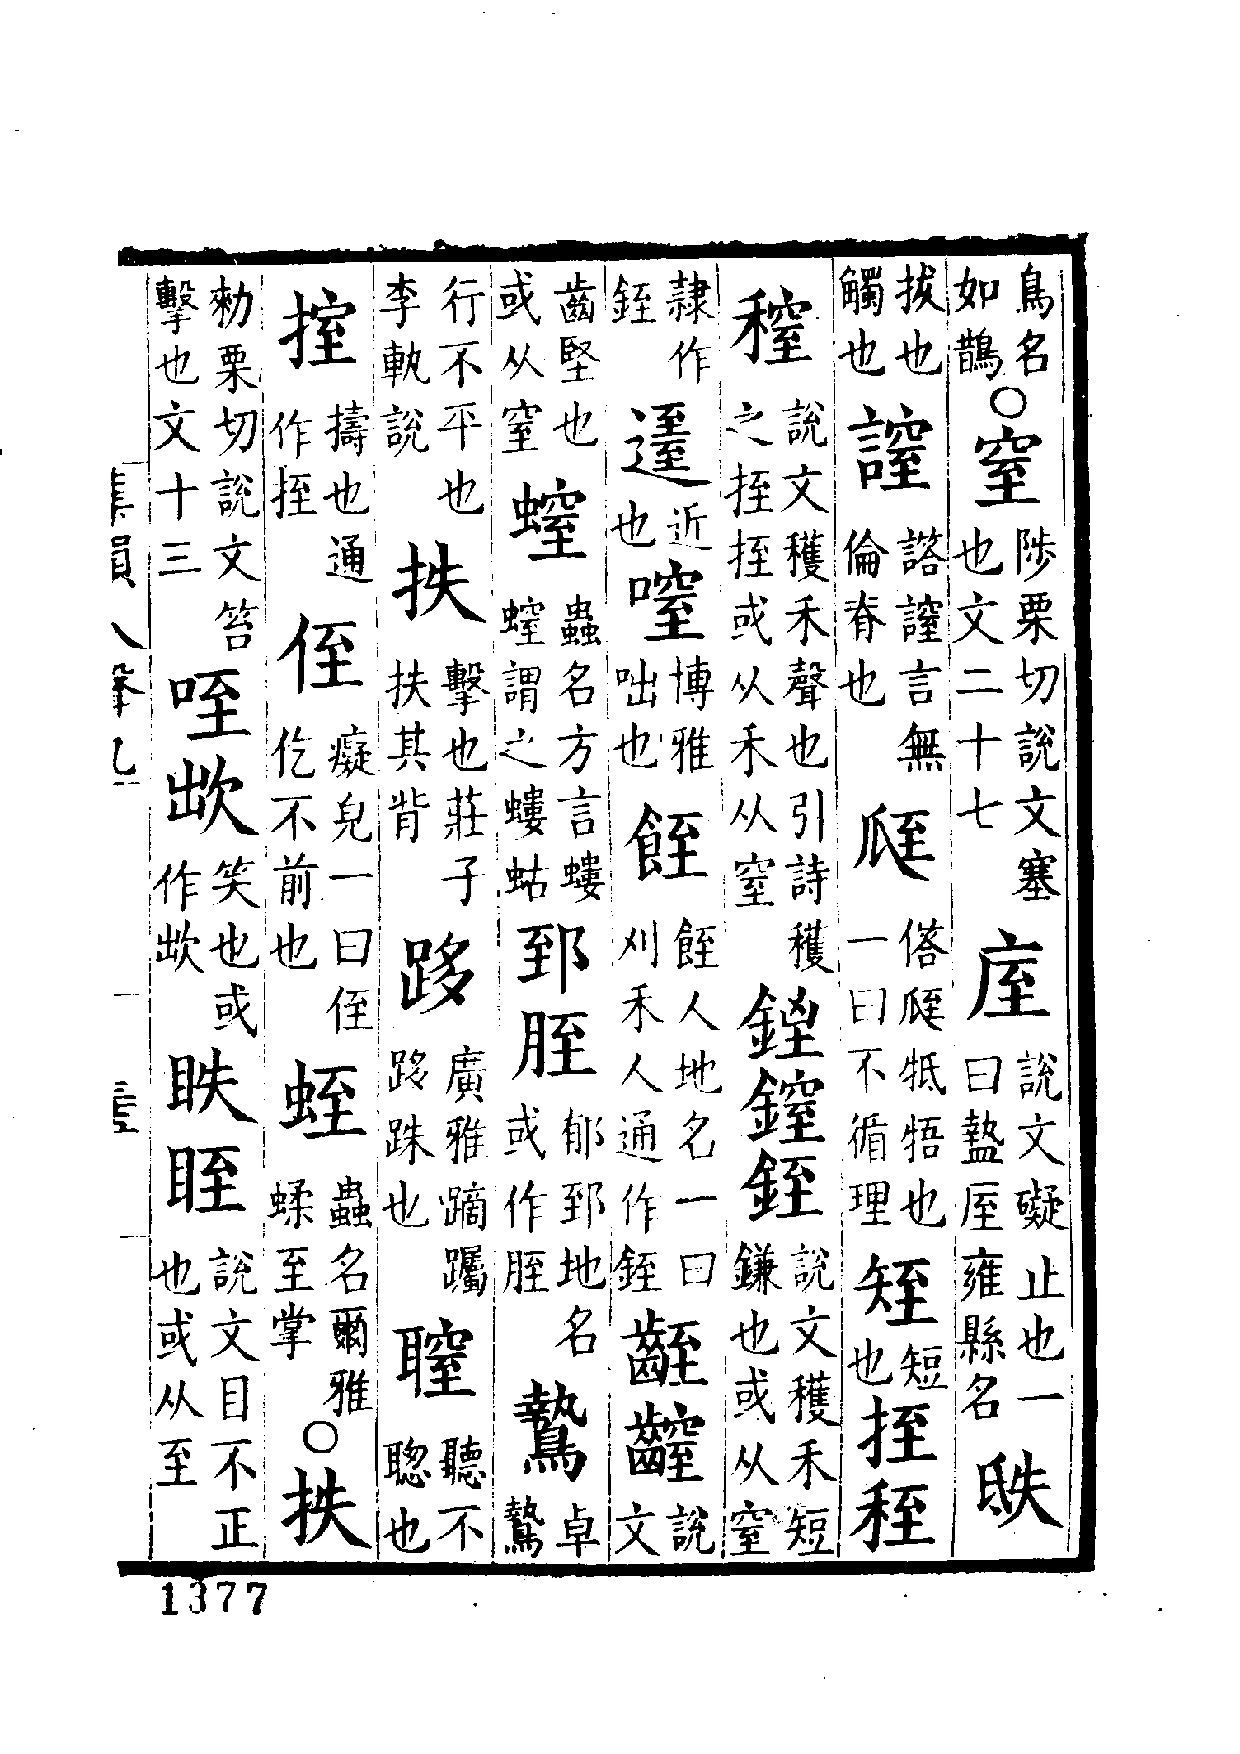 鳥名如鵲○窒陟栗切說文塞也文二十七庢說文礙止也一曰盩庢雍縣名䟡
拔也觸也𧬅詻𧬅言無倫脊也㼀偹㼀牴牾也一曰不循理䂡短也挃秷
𥥼說文穫禾聲也引詩穫之挃挃或从禾从窒鏗鑧銍說文穫禾短鎌也或从窒
隷作銍𨖹近也㗌博雅咄也䬹䬹人地名一曰刈禾人通作銍𪗻𪙏說文
齒堅也或从窒螲蟲名方言螻螲謂之螻蛄郅胵郁郅地名或作胵鷙卓鷙
行不平也李軌說抶擊也莊子抶其背跢廣雅蹢躅跢跦也𦗧聽不聰也
㨖擣也通作挃侄癡皃一曰侄仡不前也蛭蟲名爾雅蛭蝚至掌○抶
勑栗切說文笞擊也文十三咥㰞笑也或作㰞眣眰說文目不正也或从至
集韻入聲九
1377